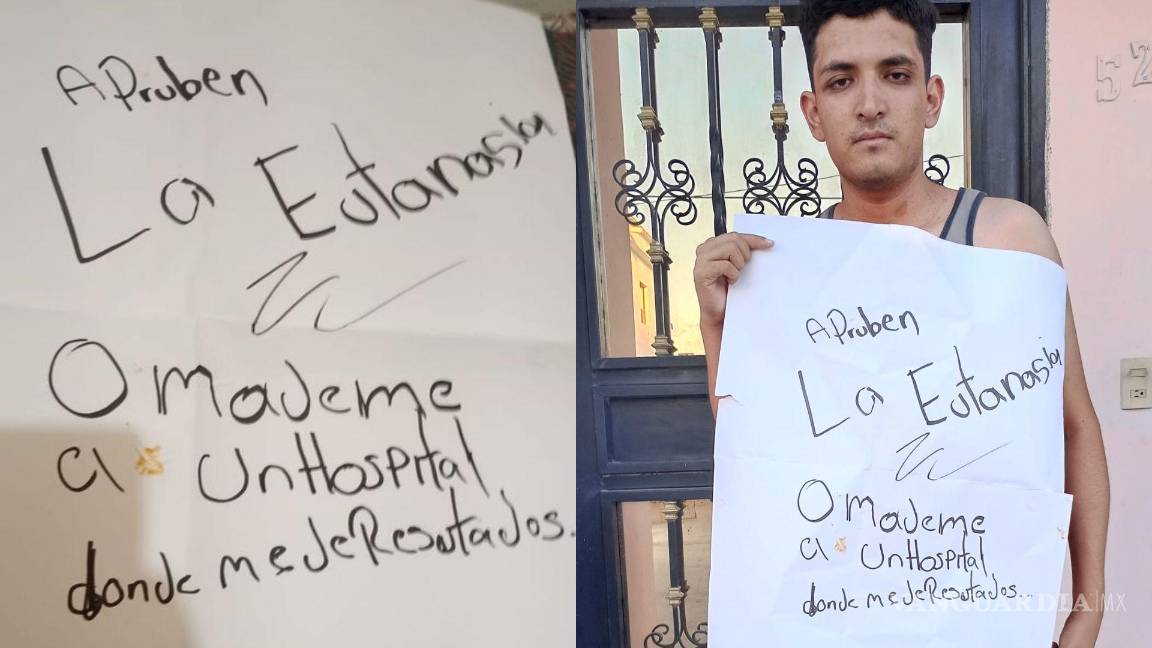 APruben
La Eutanasia
O maJeme
a UnHospital
donde meJeResutados...
APruben
La Eutanasia
O maJeme
a UnHospital
donde meJeResutados...
52
VANGUARDIA|MX